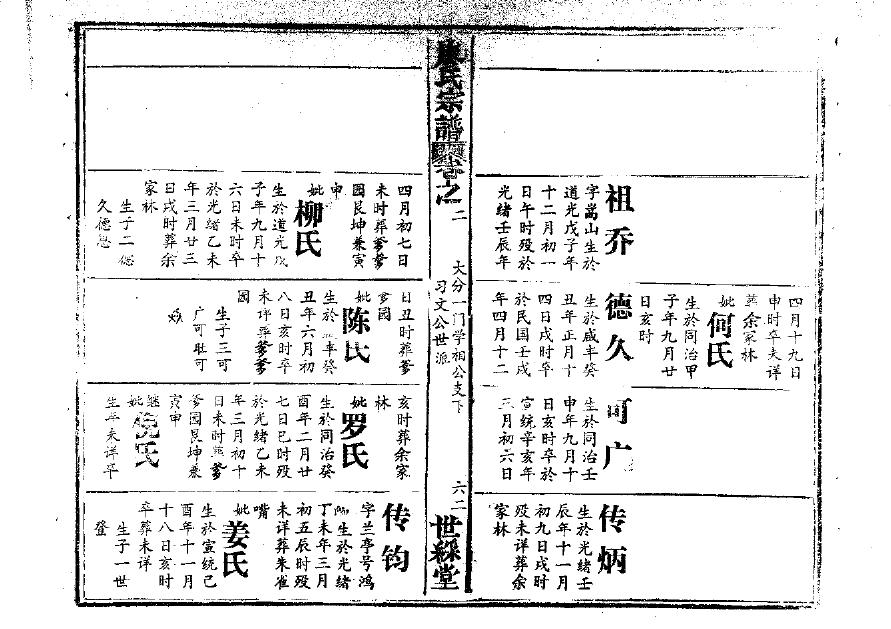 祖乔
字嵩山生於
道光戊子年
十二月初一
日午时殁於
光绪壬辰年
四月十九日
申时卒未详
葬余家林
妣何氏
生於同治甲
子年九月廿
日亥时
德久
生於咸丰癸
丑年正月十
四日戌时卒
於民国壬戌
年四月十二
可广
生於同治壬
申年九月十
日亥时卒於
宣统辛亥年
三月初六日
传炳
生於光绪壬
辰年十一月
初九日戌时
殁未详葬余
家林
氏宗譜卷之二
大分一门学相公支下
习文公世派
六二
世綵堂
四月初七日
未时葬爹爹
园艮坤兼寅
申
妣柳氏
生於道光戊
子年九月十
六日未时卒
於光绪乙未
年三月廿三
日戌时葬余
家林
生子二德
久德懋
日丑时葬爹
爹园
妣陈氏
生於咸丰癸
丑年六月初
八日亥时卒
未详葬爹爹
园
生子三可
广可壮可
亥时葬余家
林
妣罗氏
生於同治癸
酉年二月廿
七日巳时殁
於光绪乙未
年三月初十
日未时葬爹
爹园艮坤兼
寅申
继妣倪氏
生年未详卒
传钧
字兰亭号鸿
生於光绪
丁未年三月
初五辰时殁
未详葬朱雀
嘴
妣姜氏
生於宣统己
酉年十一月
十八日亥时
卒葬未详
生子一世
登